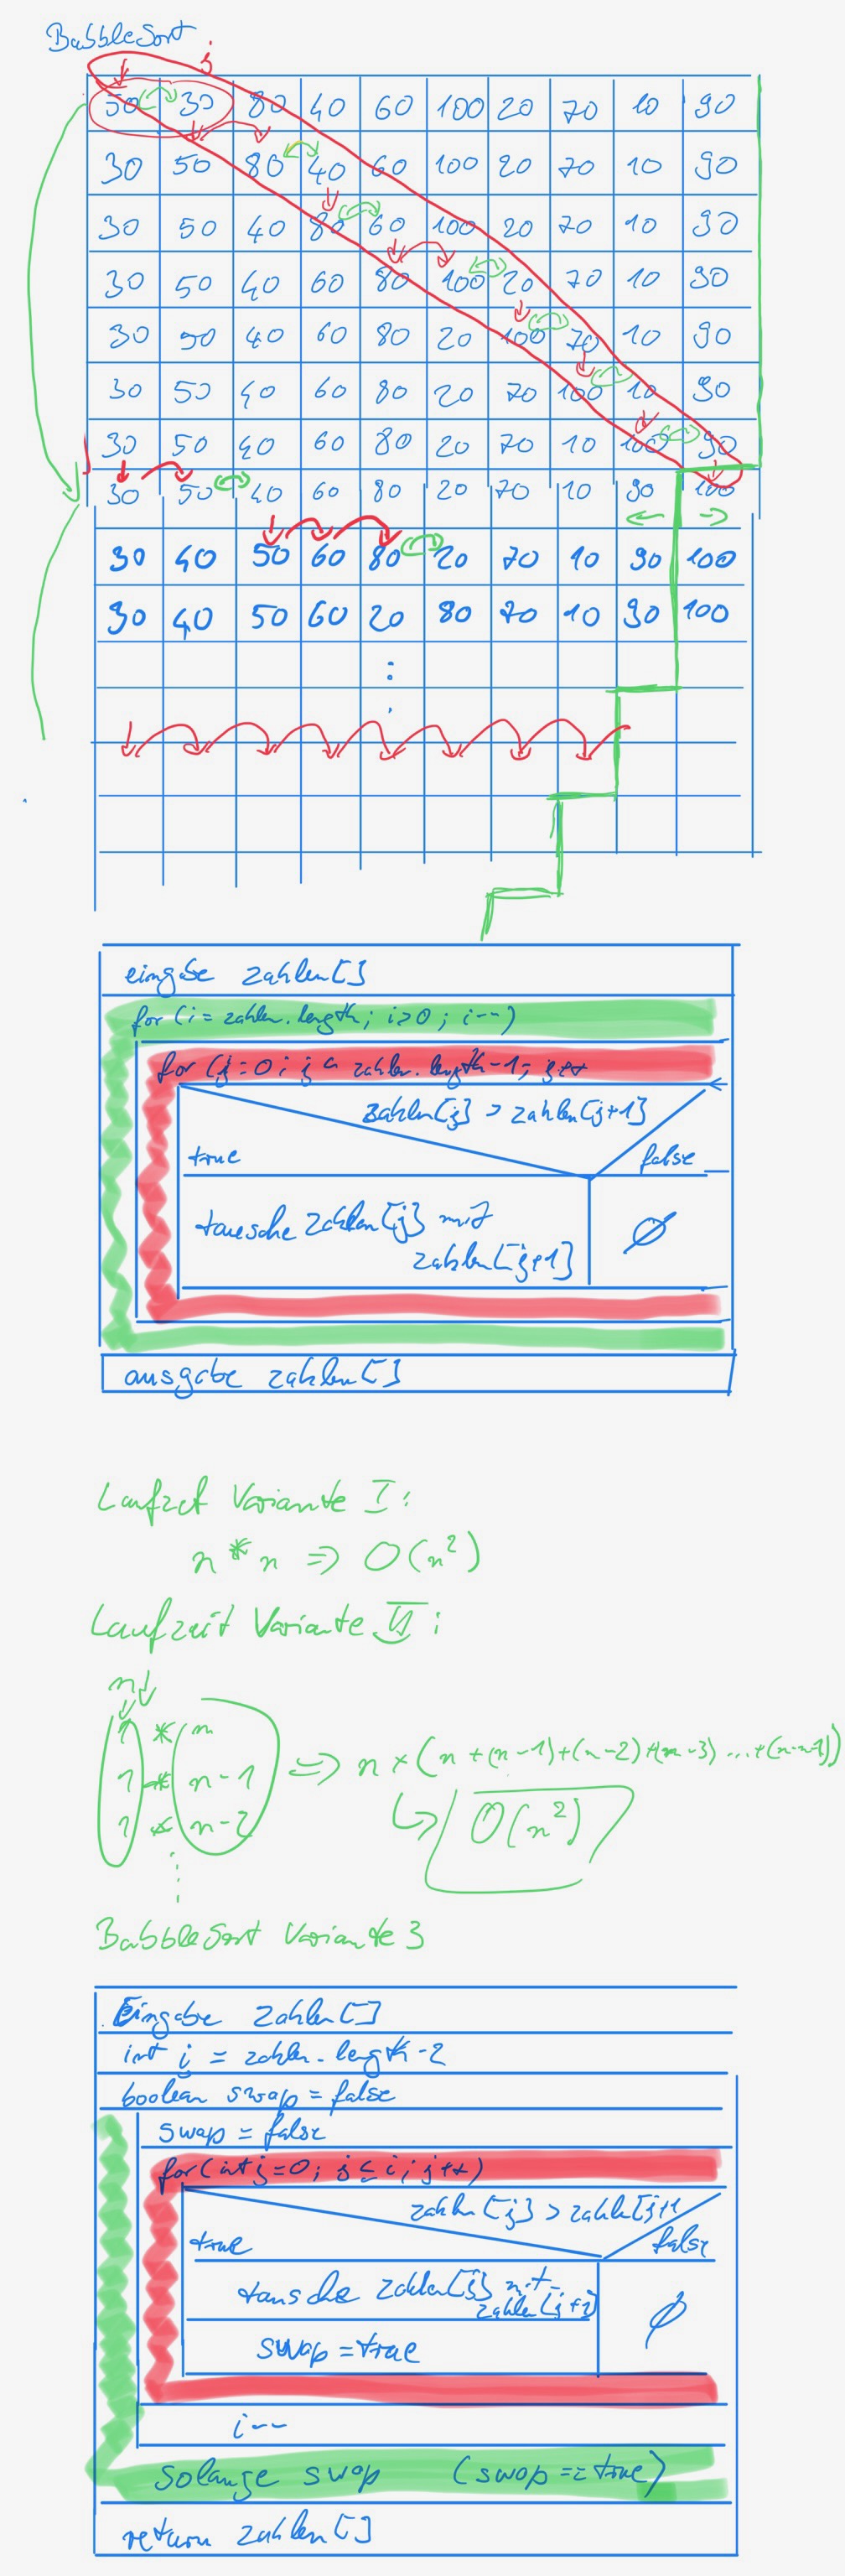 BubbleSort
j
50 30 80 40 60 100 20 70 10 90
30 50 80 40 60 100 20 70 10 90
30 50 40 80 60 100 20 70 10 90
30 50 40 60 80 100 20 70 10 90
30 50 40 60 80 20 100 70 10 90
30 50 40 60 80 20 70 100 10 90
30 50 40 60 80 20 70 10 100 90
30 50 40 60 80 20 70 10 90 100
30 40 50 60 80 20 70 10 90 100
30 40 50 60 20 80 70 10 90 100
:
.
eingabe zahlen[]
for (i = zahlen.length; i>0; i--)
for (j=0; j < zahlen.length-1; j++
zahlen[j] > zahlen[j+1]
true
false
tausche zahlen[j] mit
zahlen[j+1]
Ø
ausgabe zahlen[]
Laufzeit Variante I:
n * n => O(n²)
Laufzeit Variante II:
n
1 * n
1 * n-1
1 * n-2
=> n * (n+(n-1)+(n-2)+(n-3)...+(n-n-1))
O(n²)
BubbleSort Variante 3
Eingabe zahlen[]
int i = zahlen.length-2
boolean swap = false
swap = false
for(int j=0; j≤i; j++)
zahlen[j] > zahlen[j+1
true
false
tausche zahlen[j] mit
zahlen[j+1]
Ø
swap = true
i--
Solange swap (swap == true)
return zahlen[]